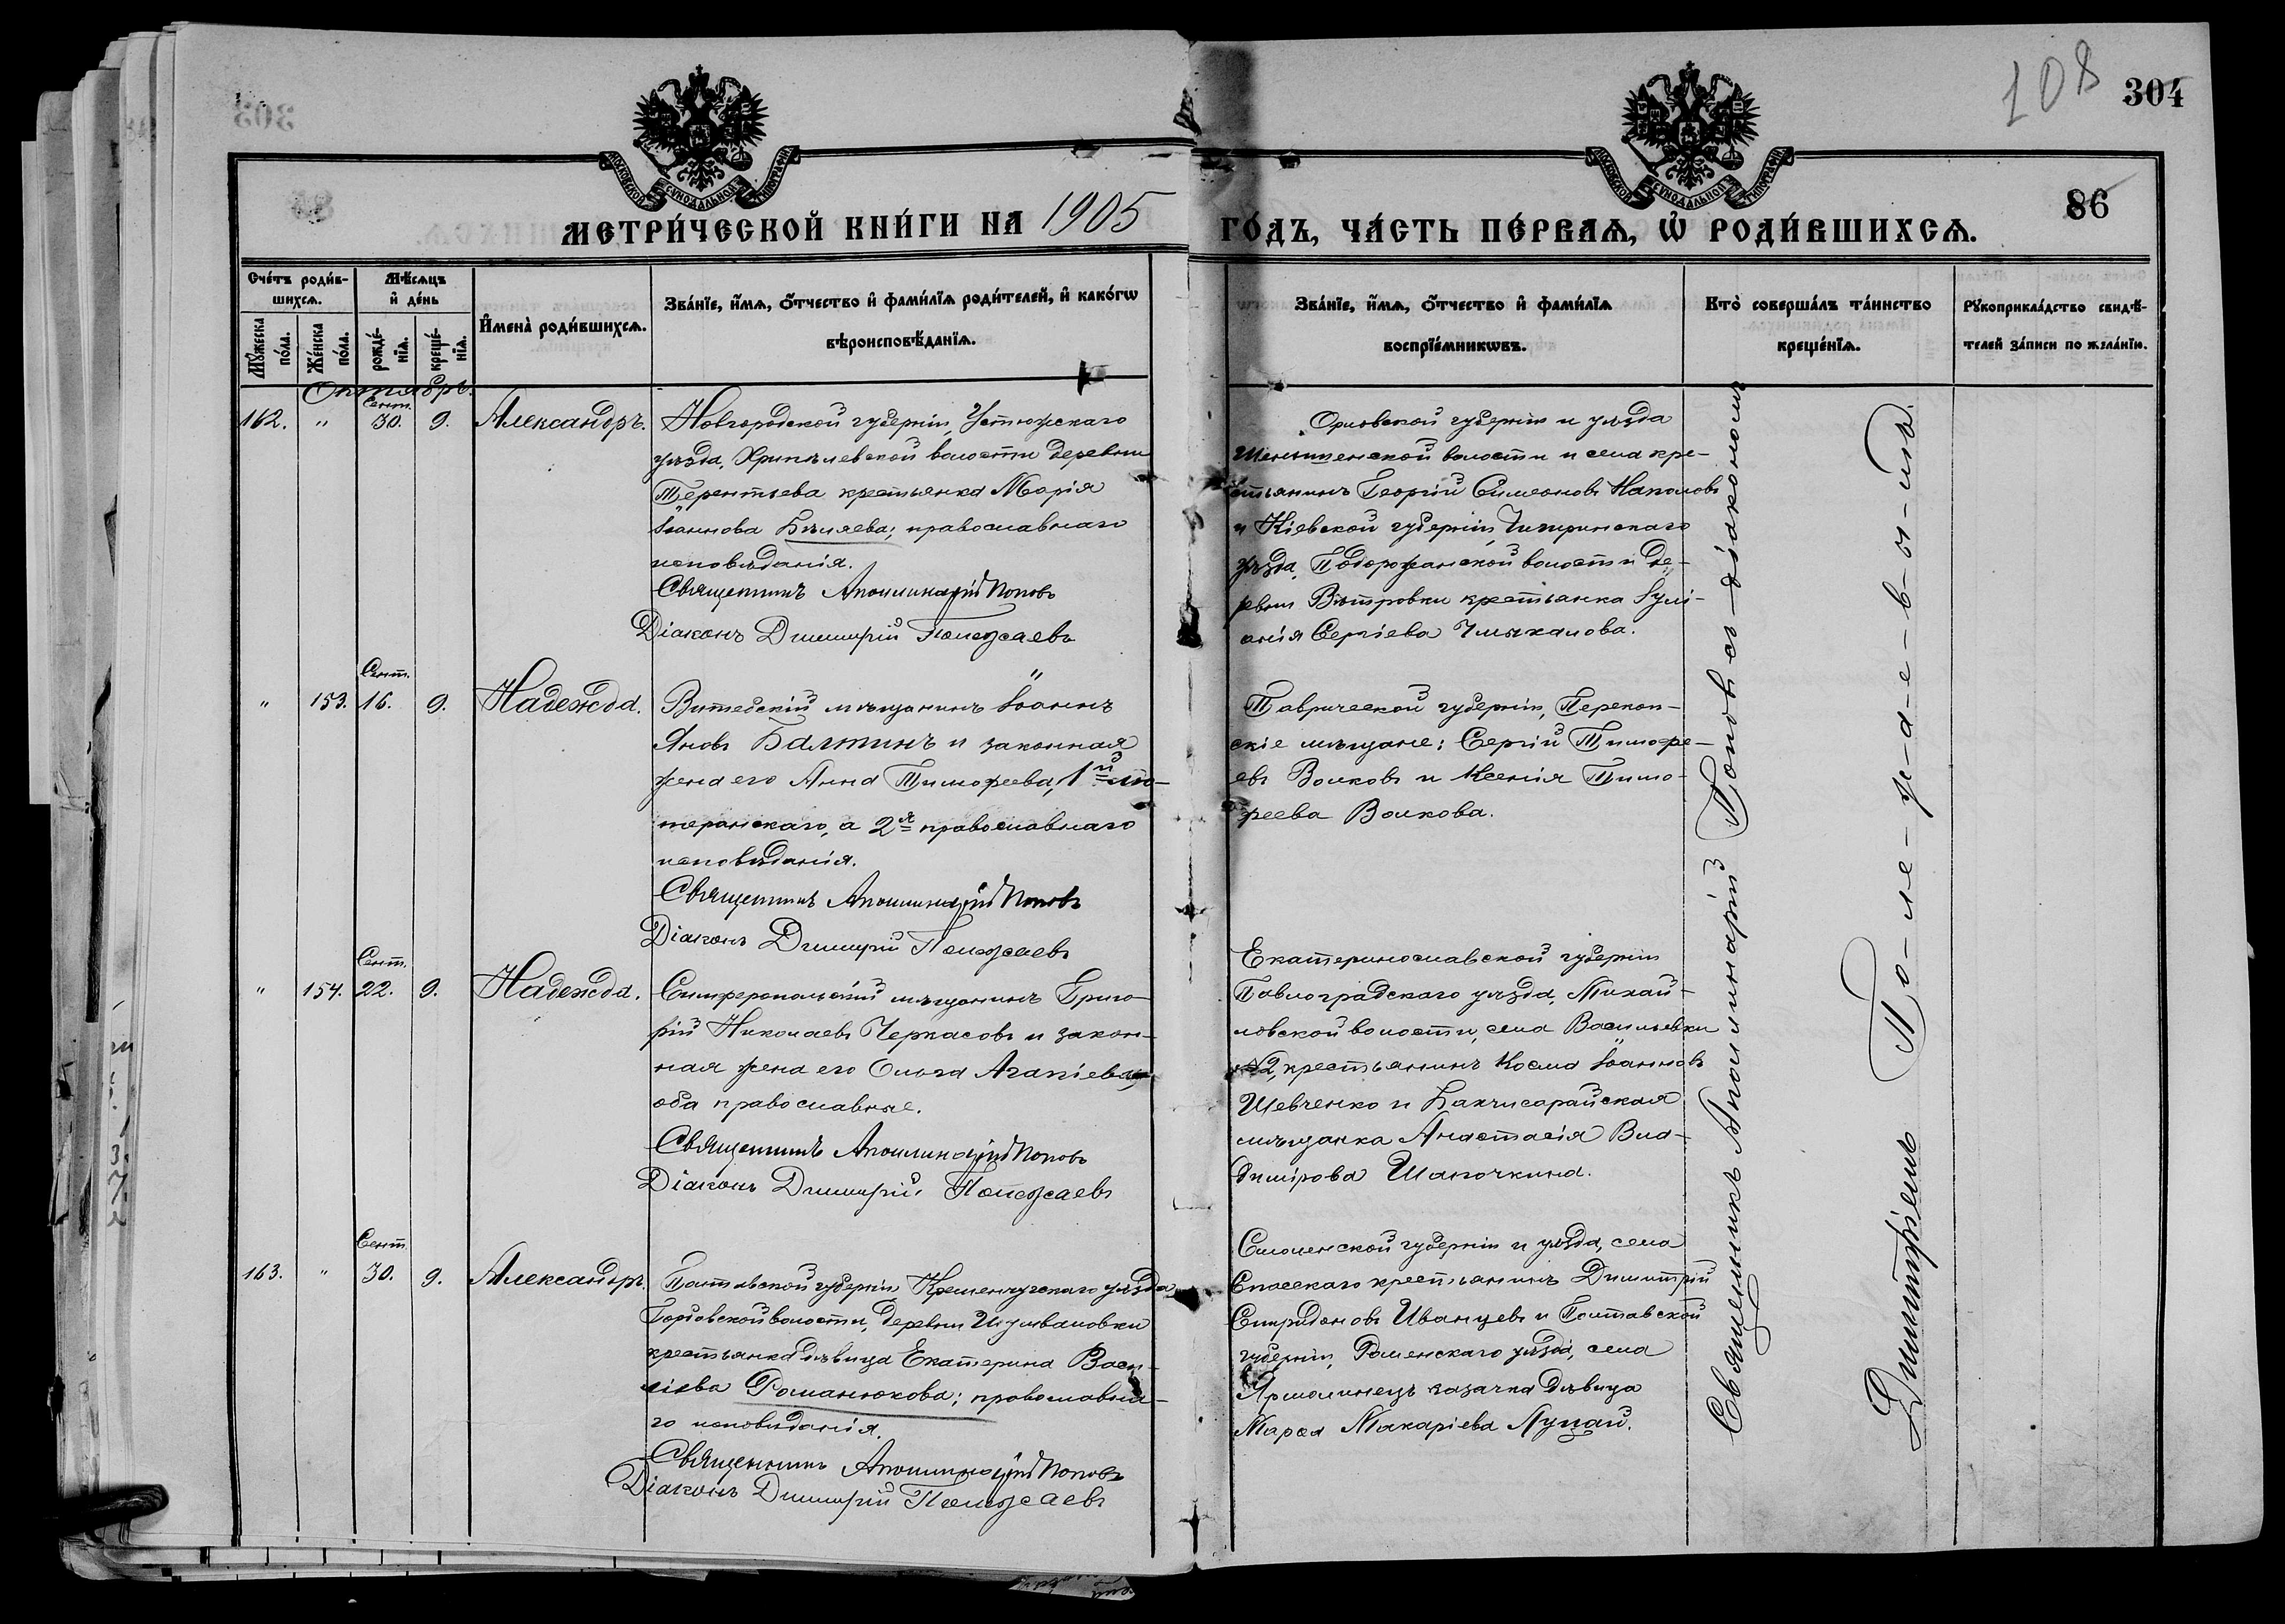 108
304
86
МОСКОВСКОЙ СѴНОДАЛЬНОЙ ТИПОГРАФІИ
МОСКОВСКОЙ СѴНОДАЛЬНОЙ ТИПОГРАФІИ
МЕТРИ́ЧЕСКОЙ КНИ́ГИ НА 1905
ГО́ДЪ, ЧА́СТЬ ПЕ́РВАѦ, Ѡ РОДИ́ВШИХСѦ.
Сче́тъ роди́в-
шихсѧ.
Мꙋ́жеска
по́ла.
Же́нска
по́ла.
Мѣ́сѧцъ
и де́нь
рожде́-
нїѧ.
креще́-
нїѧ.
И҆мена̀ роди́вшихсѧ.
Зва́нїе, и҆́мѧ, ѻ҆́тчество и҆ фами́лїѧ роди́телей, и҆ како́гѡ
вѣроисповѣ́данїѧ.
Зва́нїе, и҆́мѧ, ѻ҆́тчество и҆ фами́лїѧ
воспрїе́мникѡвъ.
Кто̀ соверша́лъ та́инство
креще́нїѧ.
Рꙋкоприкла́дство свидѣ́-
телей за́писи по жела́нїю.
Октябрь.
162. " Сент. 30. 9. Александръ.
Новгородской губерніи, Устюжскаго
уѣзда, Хрипѣлевской волости деревни
Терентьева крестьянка Марія
Іоаннова Бѣляева; православнаго
исповѣданія.
Священникъ Аполлинарій Поповъ
Діаконъ Димитрій Полежаевъ
Орловской губерніи и уѣзда
волости и села кре-
стьянинъ Георгій Симеоновъ
и Кіевской губерніи, Чигиринскаго
уѣзда, Подорожанской волости де-
ревни Вѣтровки крестьянка Іулі-
анія Сергіева
" 153. Сент. 16. 9. Надежда.
Витебскій мѣщанинъ Іоаннъ
Яновъ Балтинъ и законная
жена его Анна Тимофеева, 1й лю-
теранскаго, а 2я православнаго
исповѣданія.
Священникъ Аполлинарій Поповъ
Діаконъ Димитрій Полежаевъ
Таврической губерніи, Перекоп-
скіе мѣщане: Сергій Тимофе-
евъ Волковъ и Ксенія Тимо-
феева Волкова.
" 154. Сент. 22. 9. Надежда.
Симферопольскій мѣщанинъ Григо-
рій Николаевъ Черкасовъ и закон-
ная жена его Ольга Агапіева,
оба православные.
Священникъ Аполлинарій Поповъ
Діаконъ Димитрій Полежаевъ
Екатеринославской губерніи
Павлоградскаго уѣзда, Михай-
ловской волости, села Васильевки
№2, крестьянинъ Косма Іоанновъ
Шевченко и Бахчисарайская
мѣщанка Анастасія Вла-
димірова Шапочкина.
163. " Сент. 30. 9. Александръ.
Полтавской губерніи Кременчугскаго уѣзда
волости, деревни
крестьянка дѣвица Екатерина Васи-
ліева Романюкова; православна-
го исповѣданія.
Священникъ Аполлинарій Поповъ
Діаконъ Димитрій Полежаевъ
Смоленской губерніи и уѣзда, села
Спасскаго крестьянинъ Димитрій
Спиридоновъ Иванцевъ и Полтавской
губерніи, Роменскаго уѣзда, села
Ярмолинецъ казачка дѣвица
Макаріева Лупай.
Священникъ Аполлинарій Поповъ съ діакономъ
Димитріемъ По-ле-жа-е-в-ы-мъ.